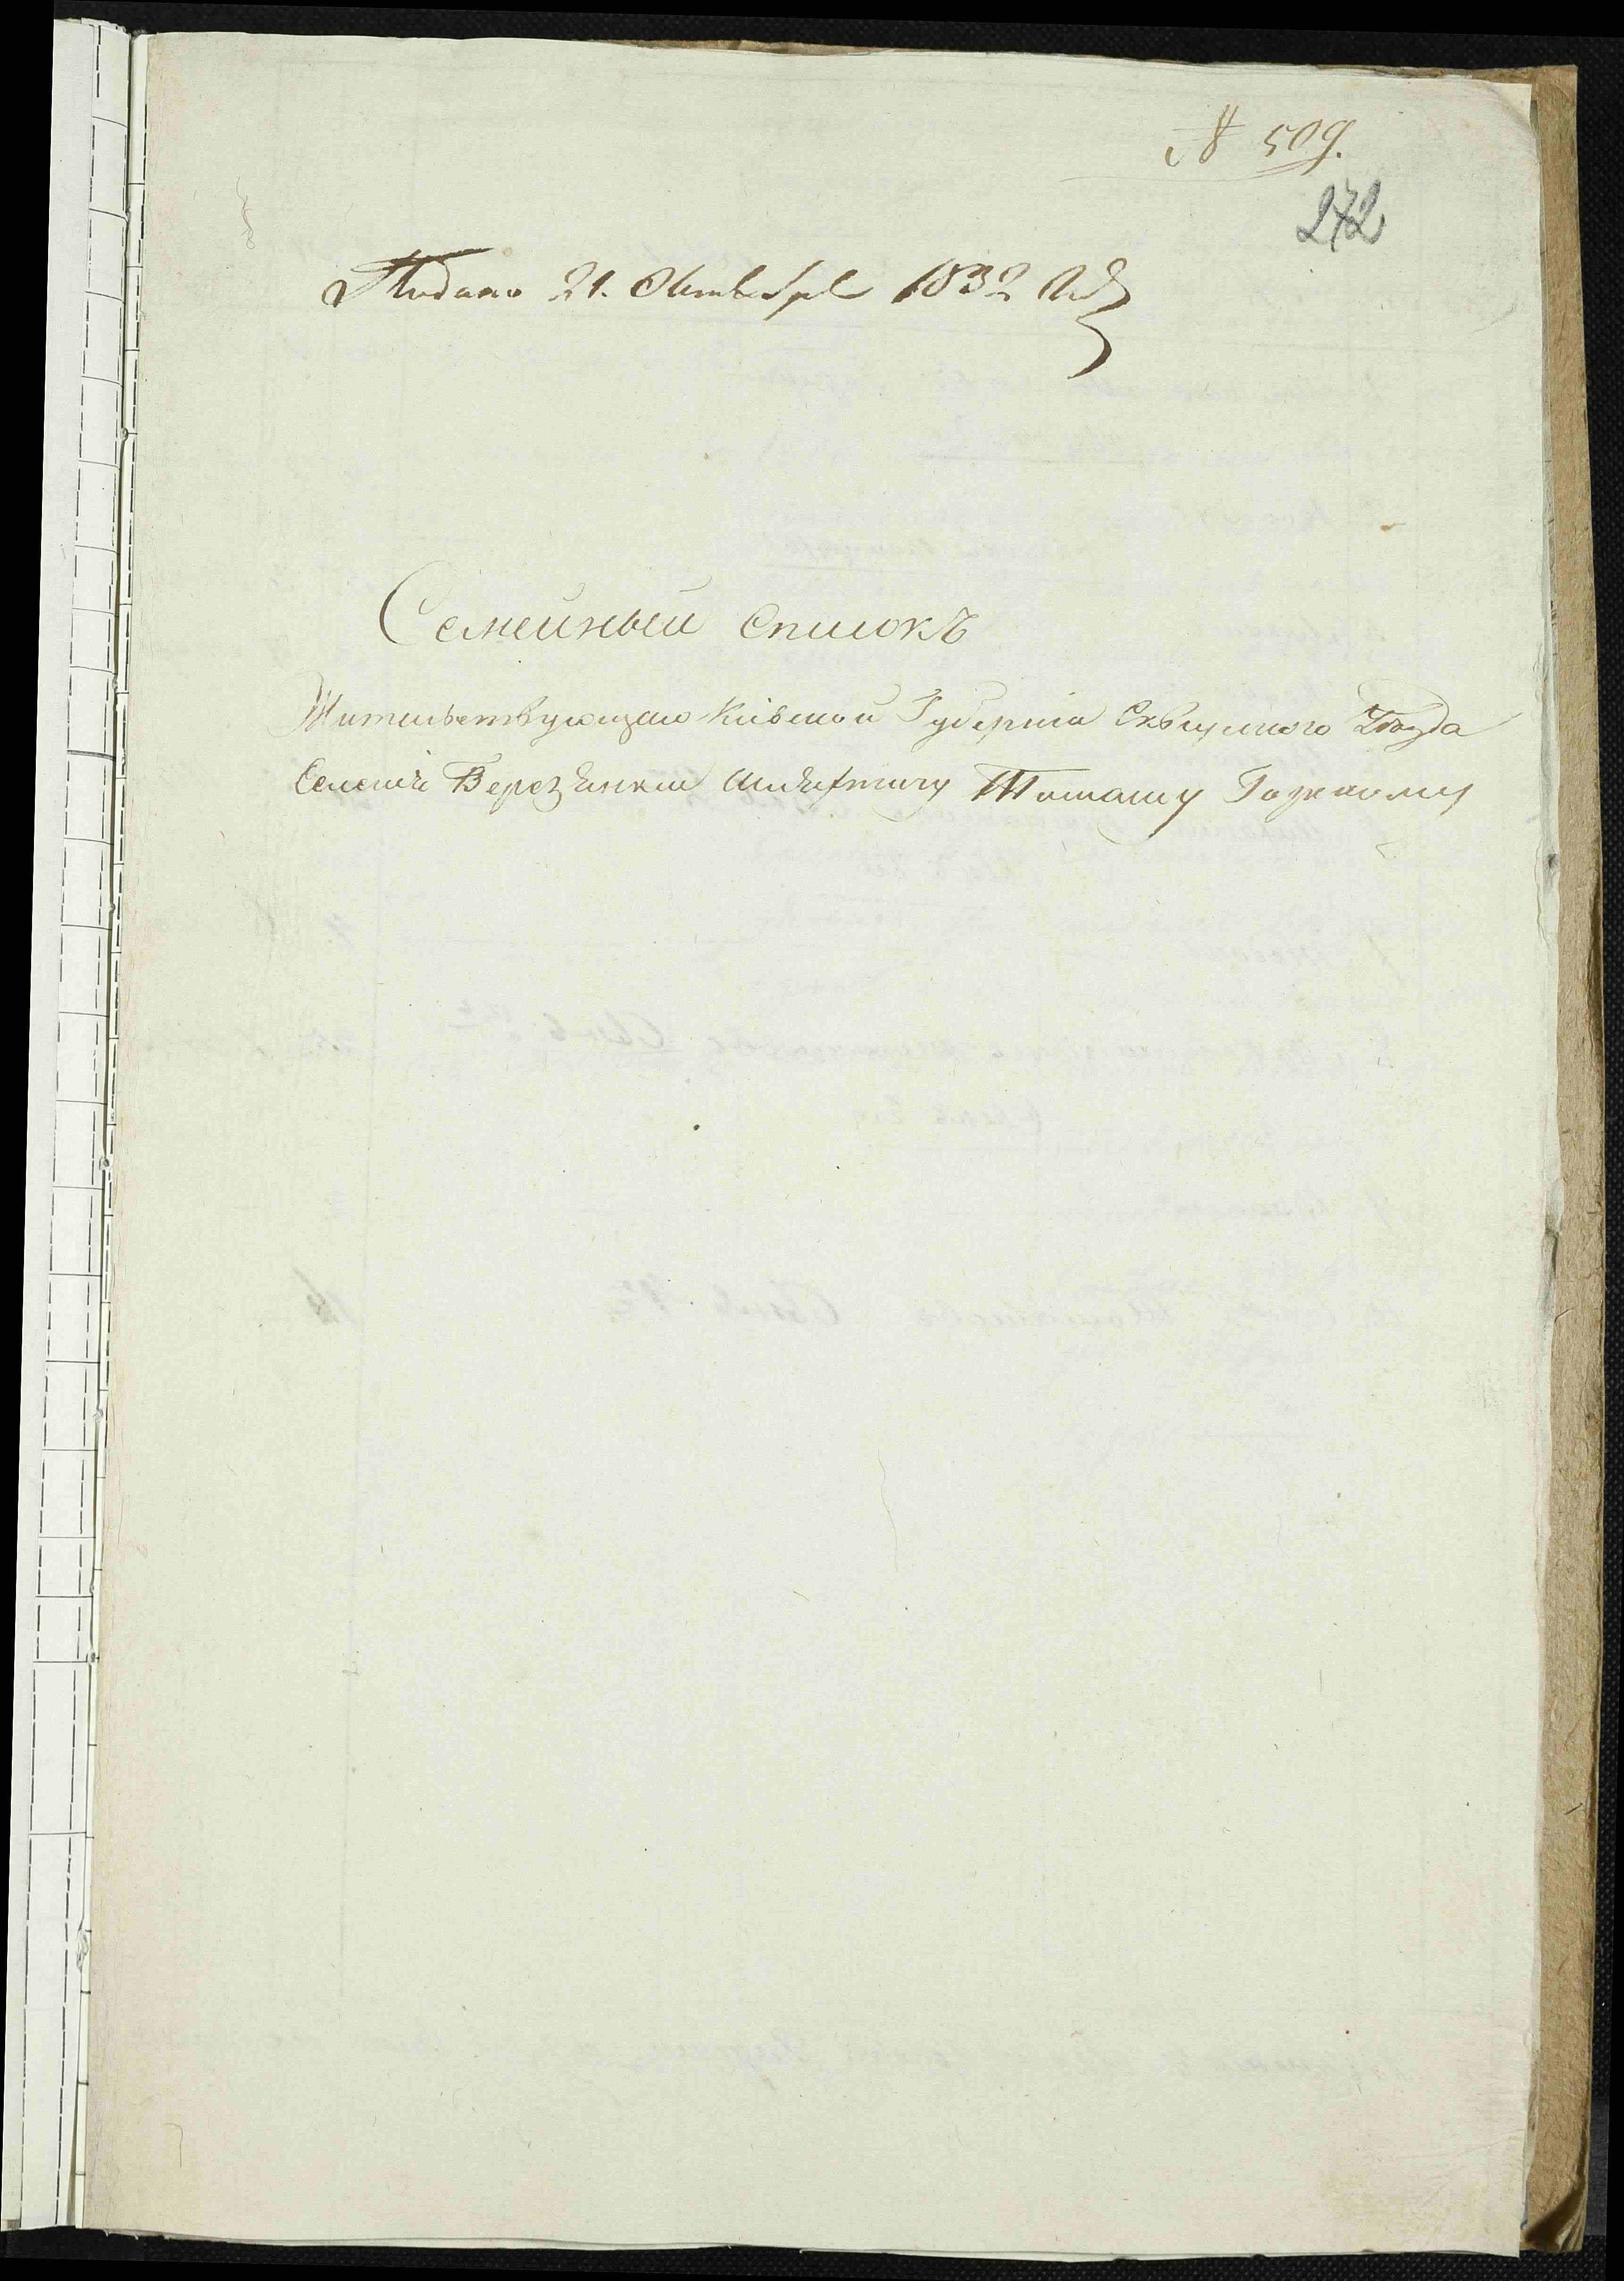 № 509.
272
Подано 21. Октября 1832 года
Семейный списокъ
Жительствующаго Кіевской Губерніи Сквирского Уезда
Селенія Березянки шляхтичу Томашу